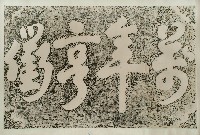 萬年亨衢